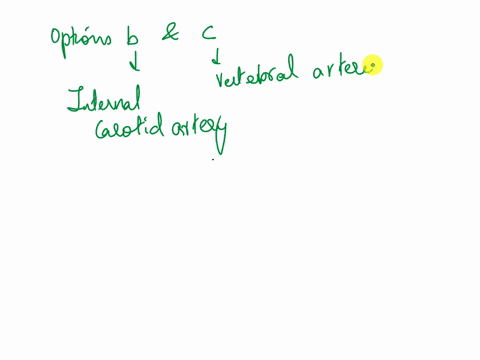 Options b & c
↓ ↓
vertebral arteri
Internal
Carotid artery